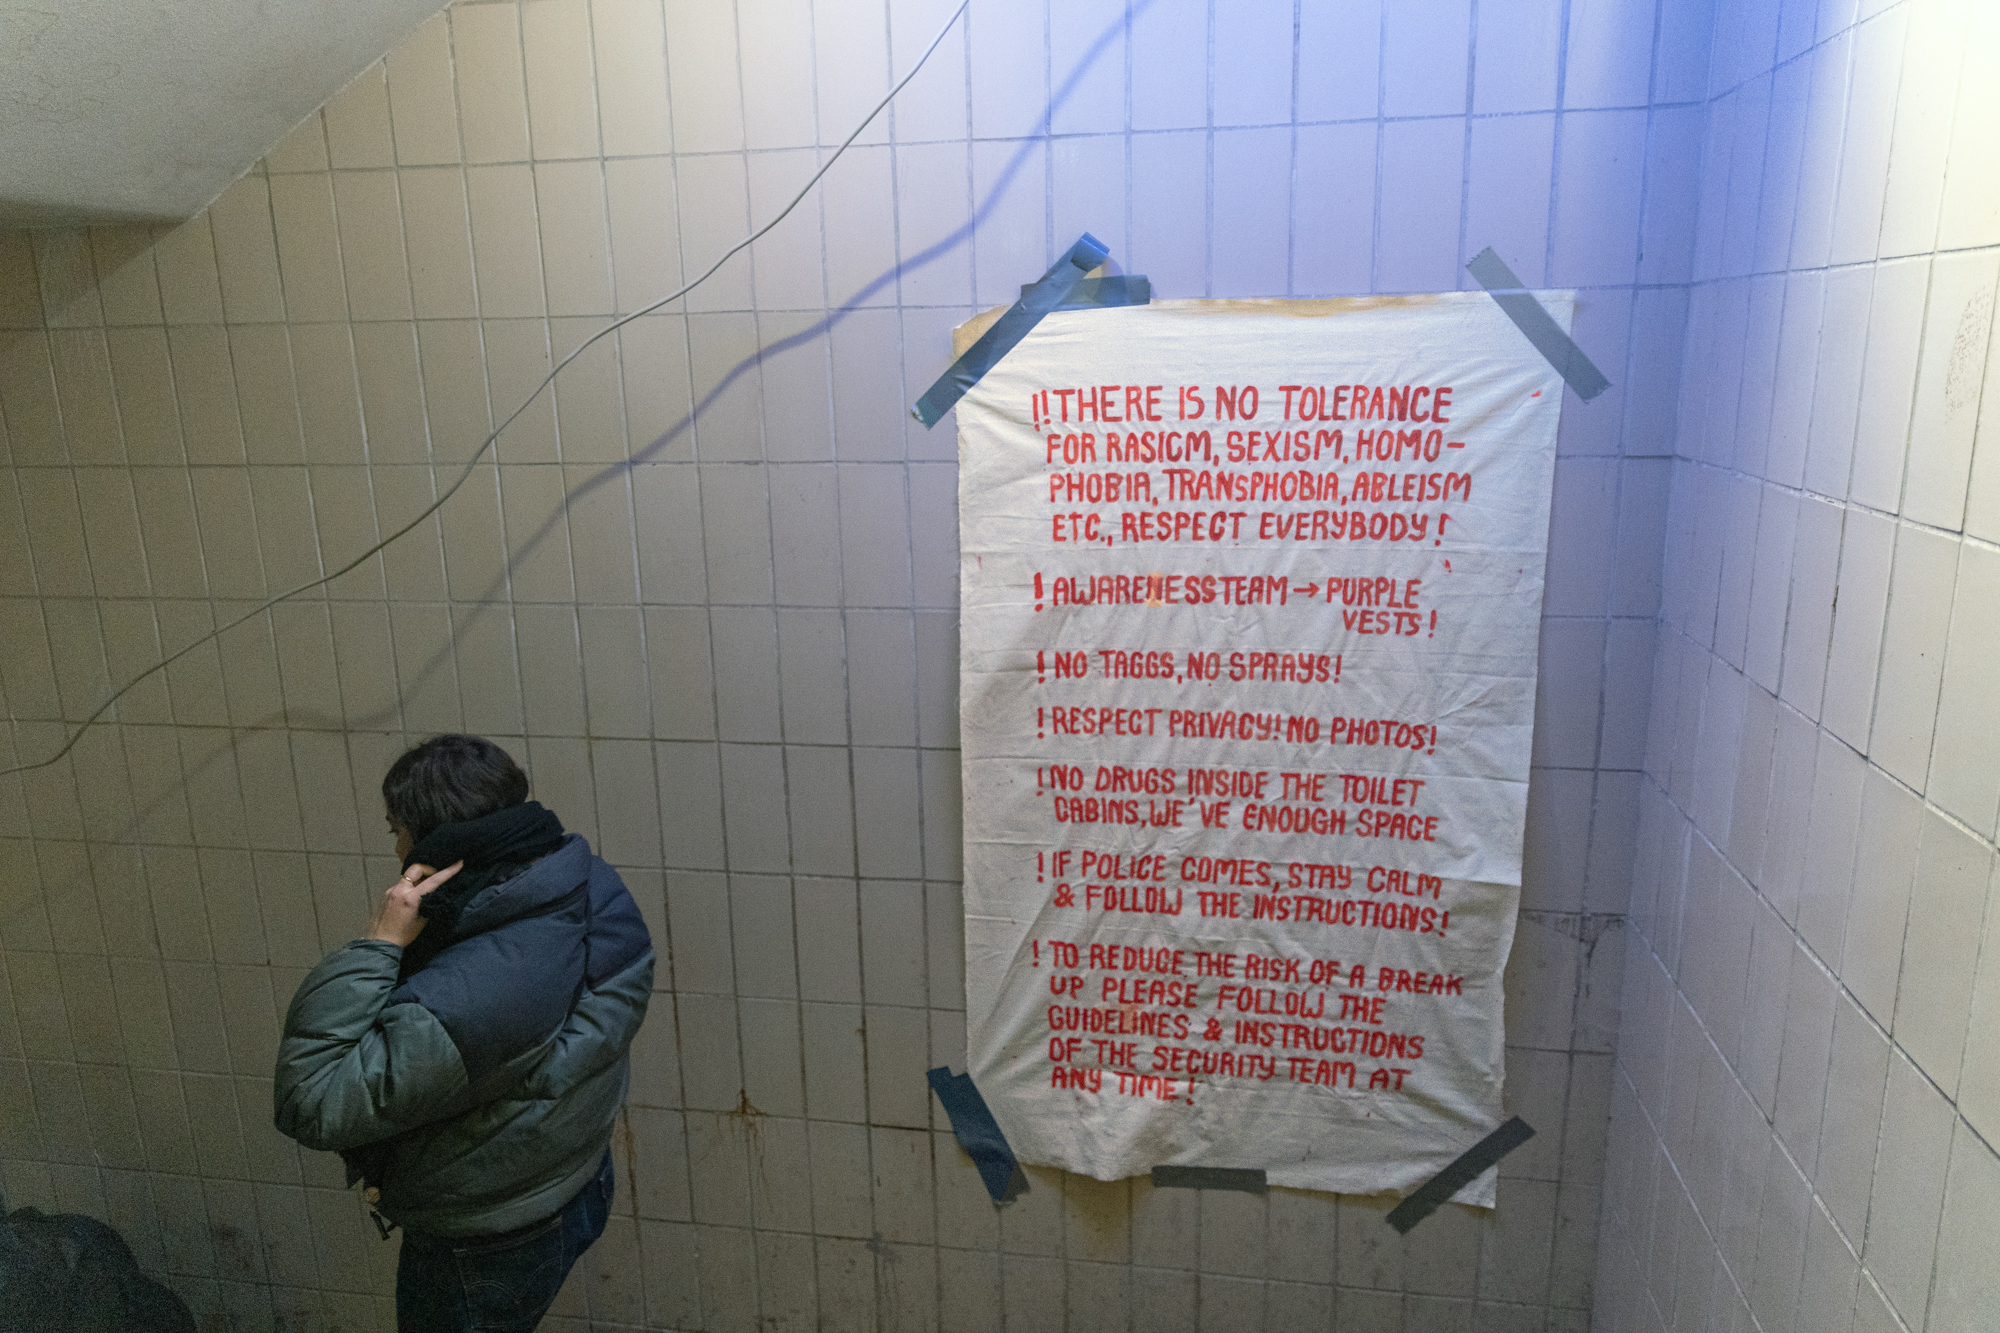 !!THERE IS NO TOLERANCE
FOR RASICM, SEXISM, HOMO-
PHOBIA, TRANSPHOBIA, ABLEISM
ETC., RESPECT EVERYBODY!
! AWARENESSTEAM → PURPLE
VESTS!
! NO TAGGS, NO SPRAYS!
! RESPECT PRIVACY! NO PHOTOS!
! NO DRUGS INSIDE THE TOILET
CABINS, WE'VE ENOUGH SPACE
! IF POLICE COMES, STAY CALM
& FOLLOW THE INSTRUCTIONS!
! TO REDUCE THE RISK OF A BREAK
UP PLEASE FOLLOW THE
GUIDELINES & INSTRUCTIONS
OF THE SECURITY TEAM AT
ANY TIME!